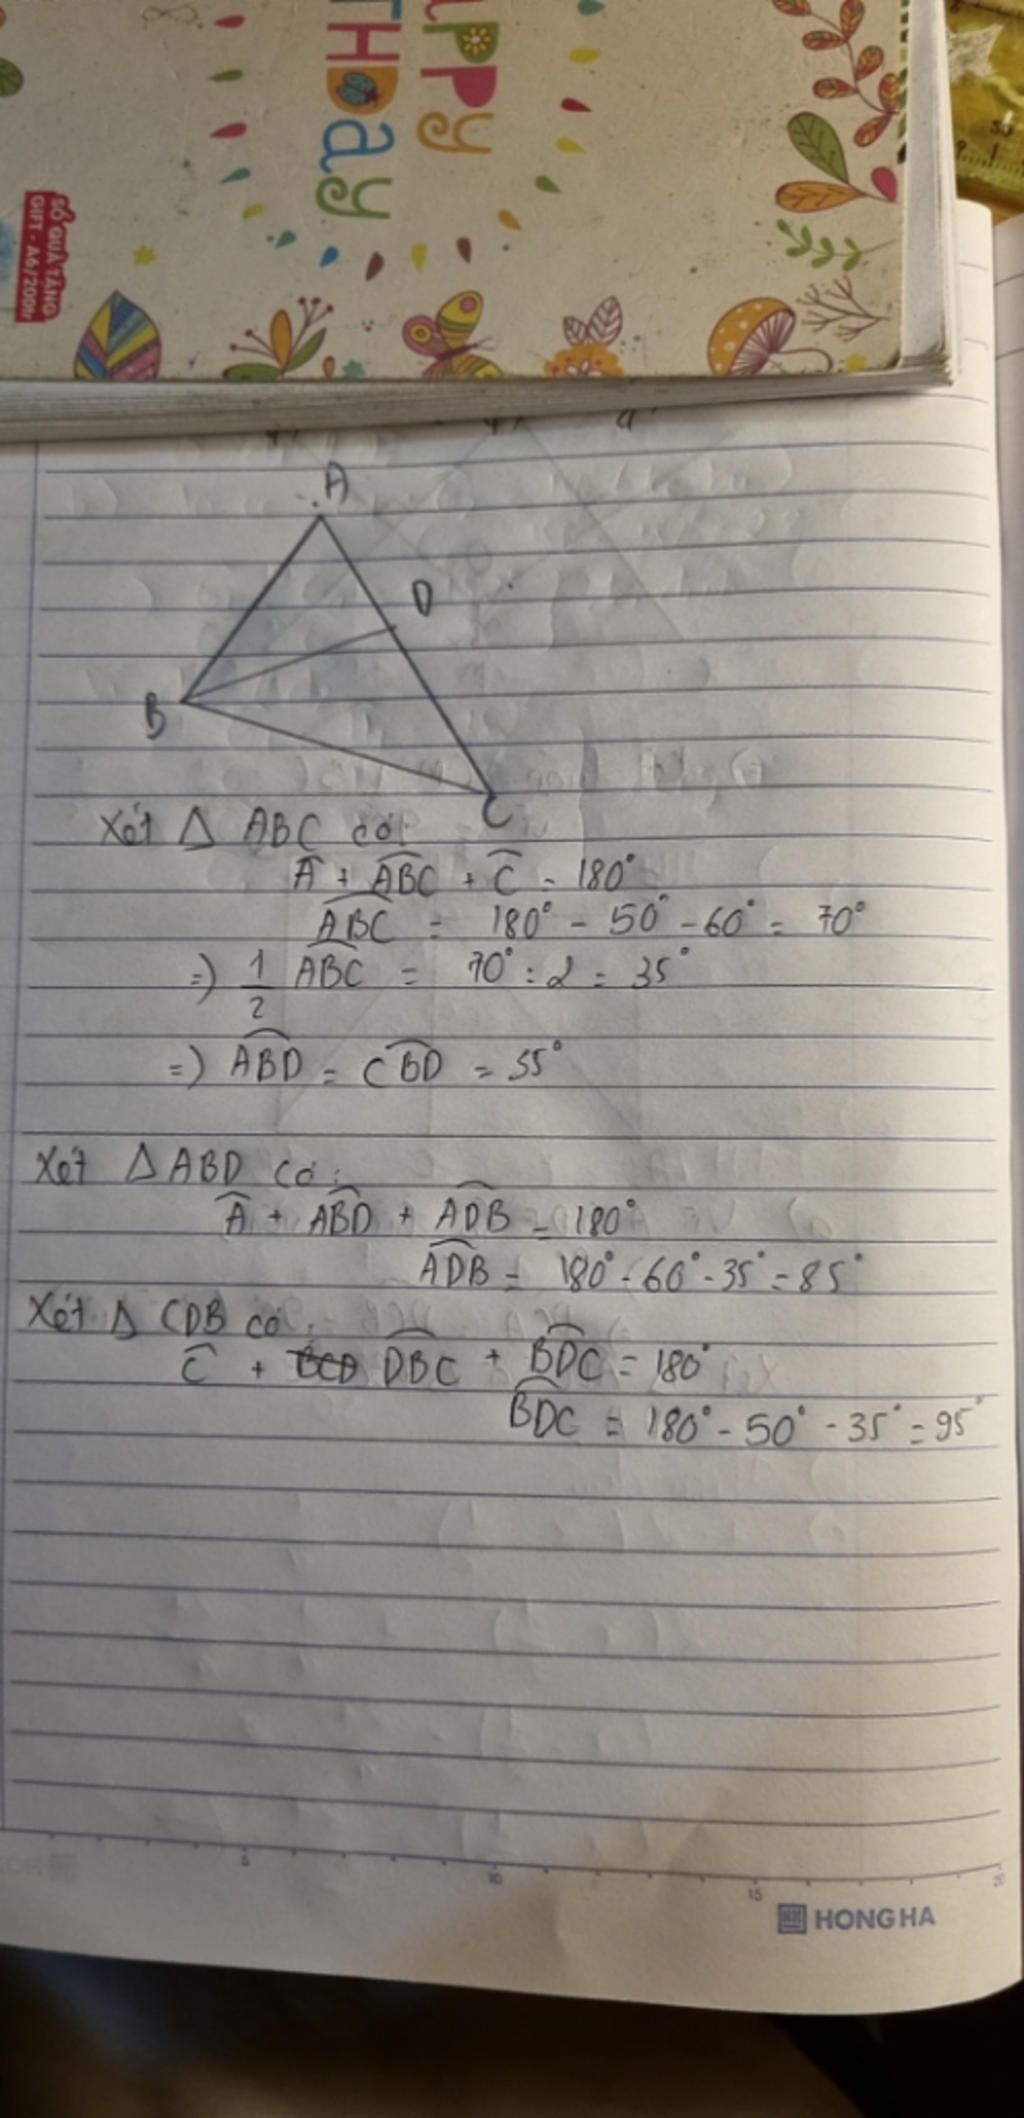 HAPPY
BIRTHDAY
SỔ QUÀ TẶNG
GIFT - A6/200tr
A
D
B
C
Xét Δ ABC có:
Â + \widehat{ABC} + Ĉ = 180°
\widehat{ABC} = 180° - 50° - 60° = 70°
=) 1/2 \widehat{ABC} = 70° : 2 = 35°
=) \widehat{ABD} = \widehat{CBD} = 35°
Xét Δ ABD có:
Â + \widehat{ABD} + \widehat{ADB} = 180°
\widehat{ADB} = 180° - 60° - 35° = 85°
Xét Δ CDB có:
Ĉ + \widehat{DBC} + \widehat{BDC} = 180°
\widehat{BDC} = 180° - 50° - 35° = 95°
5 10 15 20
HONG HA